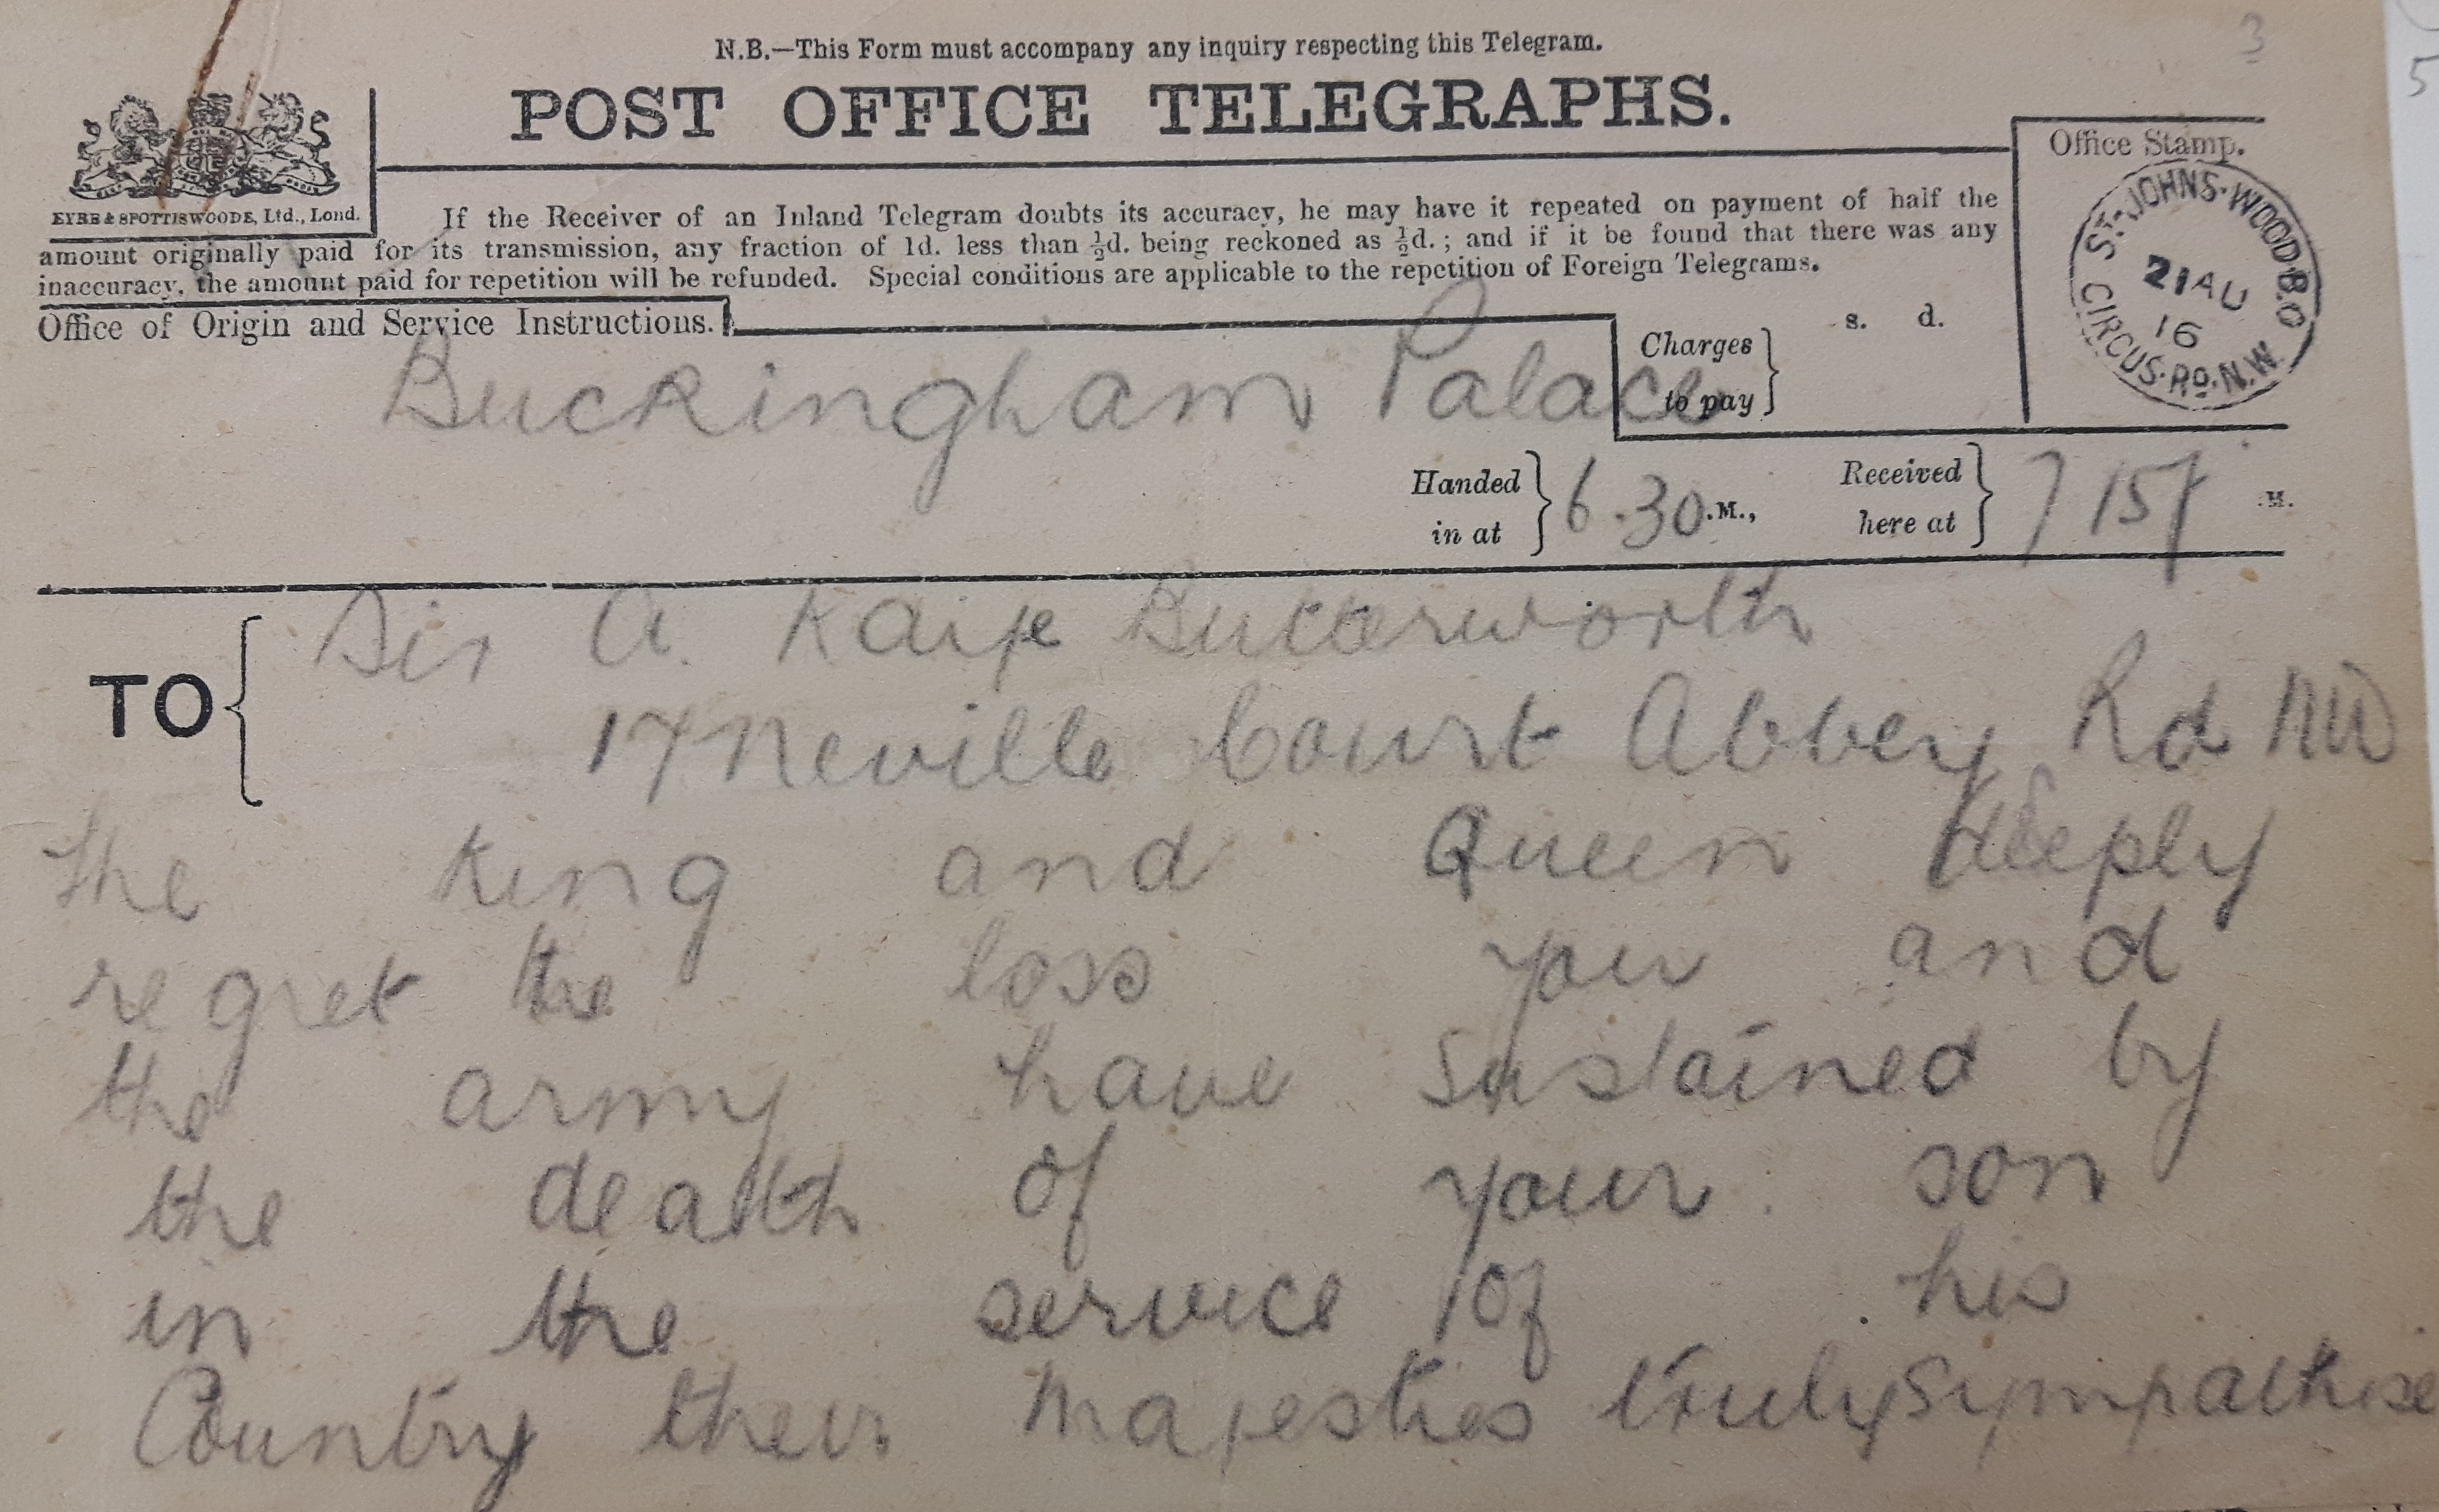 N.B.—This Form must accompany any inquiry respecting this Telegram.
POST OFFICE TELEGRAPHS.
EYRE & SPOTTISWOODE, Ltd., Lond.
If the Receiver of an Inland Telegram doubts its accuracy, he may have it repeated on payment of half the
amount originally paid for its transmission, any fraction of 1d. less than ½d. being reckoned as ½d.; and if it be found that there was any
inaccuracy, the amount paid for repetition will be refunded. Special conditions are applicable to the repetition of Foreign Telegrams.
Office of Origin and Service Instructions.
Charges to pay
s. d.
Office Stamp.
ST. JOHNS. WOOD
21 AU
16
CIRCUS. RD. N.W.
3
Buckingham Palace
Handed in at 6.30 M.,
Received here at 7 15 M.
TO
Sir A Kaye Butterworth
17 Neville Court Abbey Rd NW
the King and Queen deeply
regret the loss you and
the army have sustained by
the death of your son
in the service of his
Country their majesties truly sympathise
5